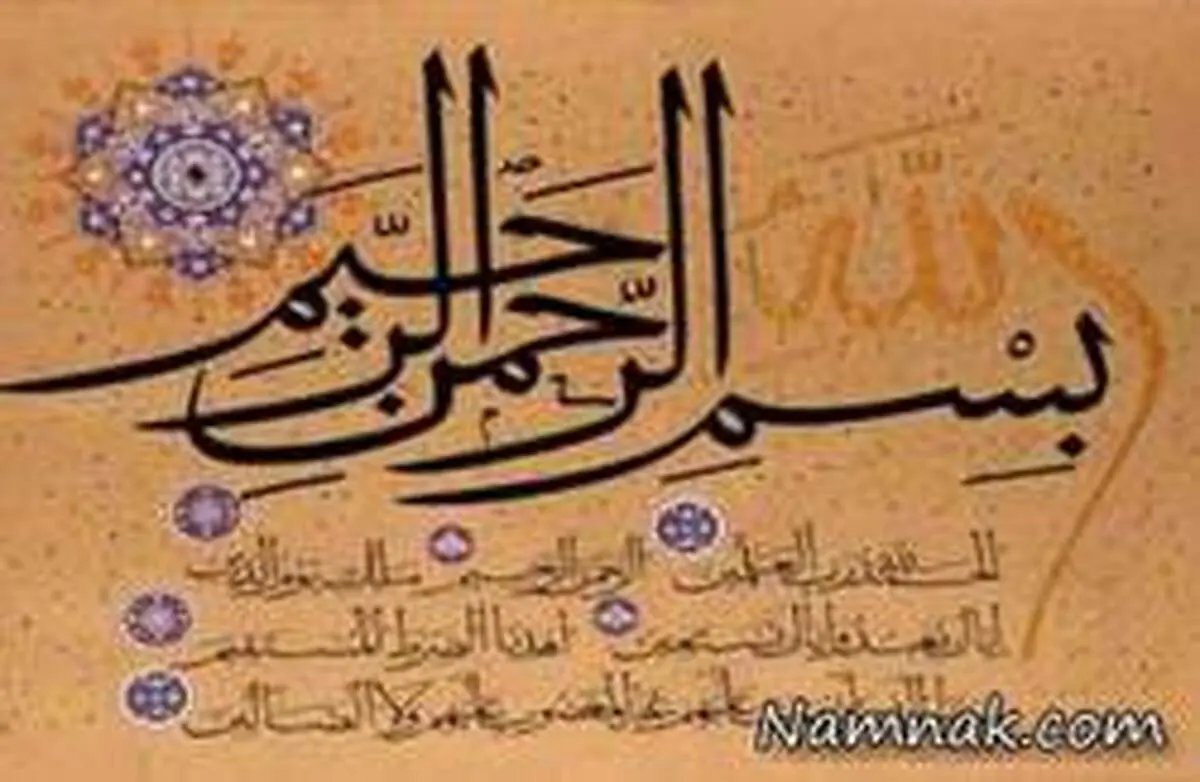 بِسْمِ اللّٰه الرّحمنِ الرّحيمِ
الحمد لله رب العلمين الرحمن الرحيم ملك يوم الدين
اياك نعبد واياك نستعين اهدنا الصراط المستقيم
عليهم غير المغضوب عليهم ولا الضالين
Namnak.com